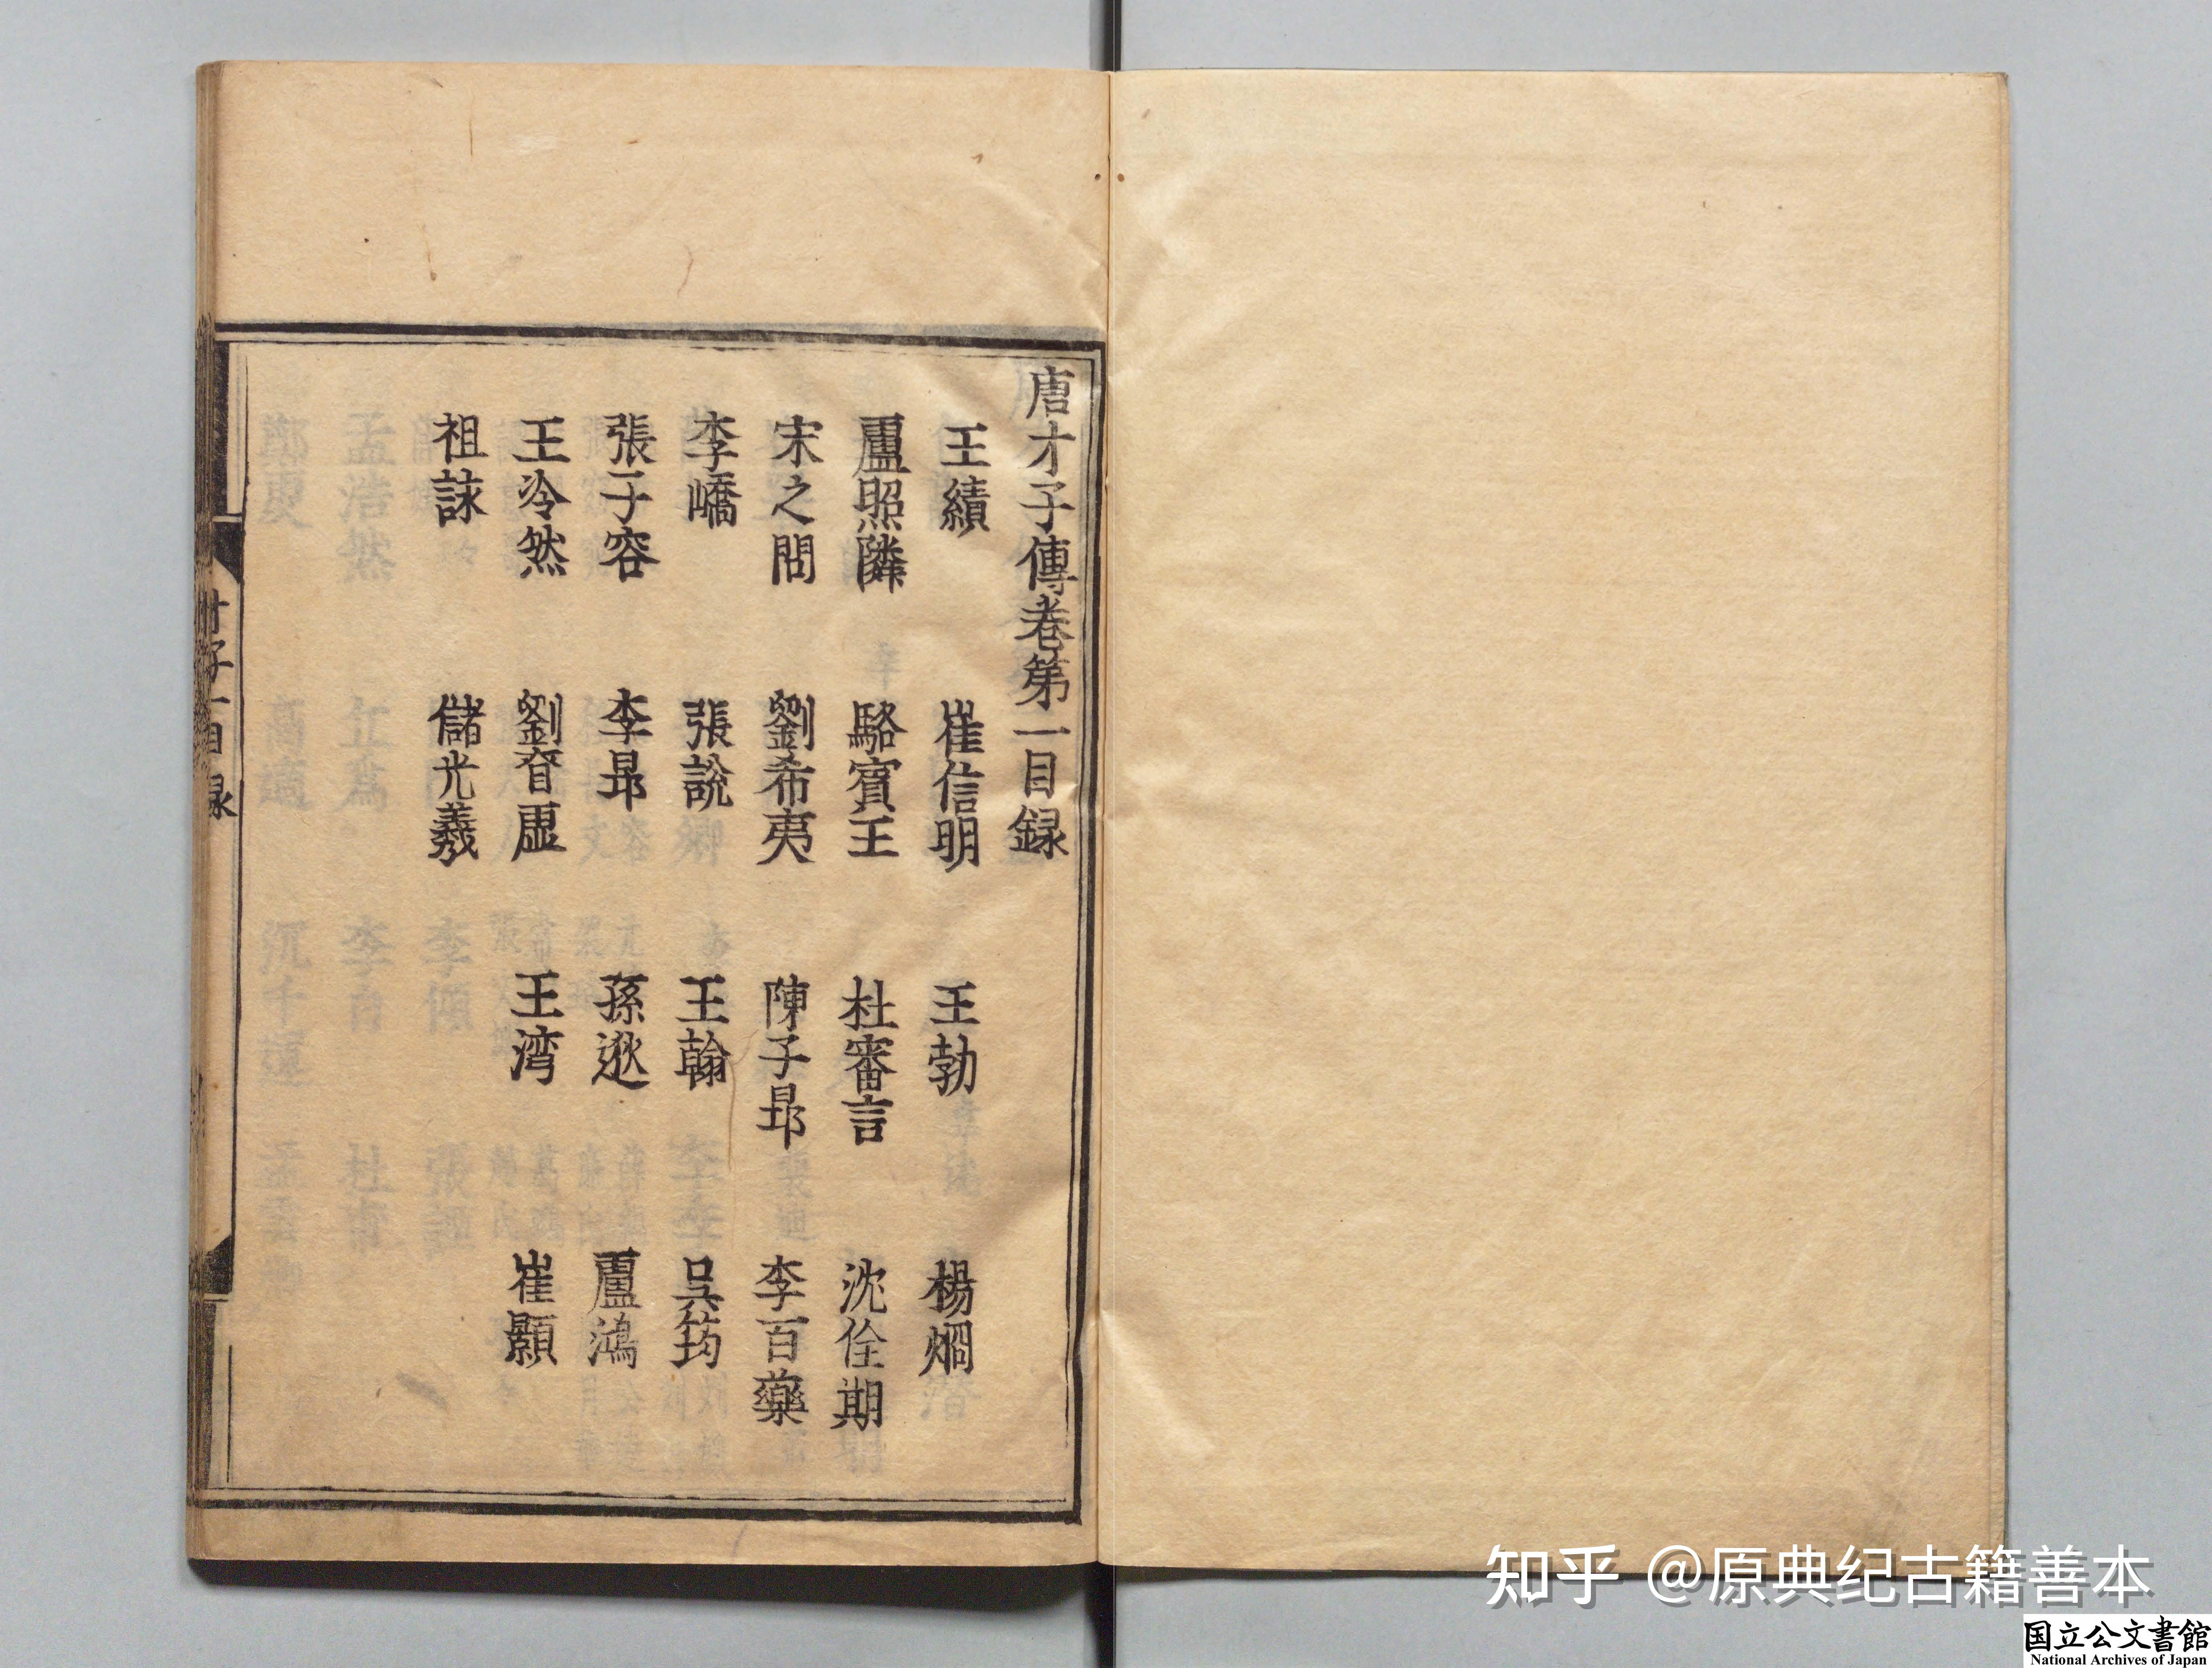 唐才子傳卷第一目録
王績 崔信明 王勃 楊烱
盧照隣 駱賓王 杜審言 沈佺期
宋之問 劉希夷 陳子昻 李百藥
李嶠 張說 王翰 吳筠
張子容 李昻 孫逖 盧鴻
王泠然 劉眘虛 王湾 崔顥
祖詠 儲光羲
才子一目録
知乎 @原典纪古籍善本
国立公文書館
National Archives of Japan